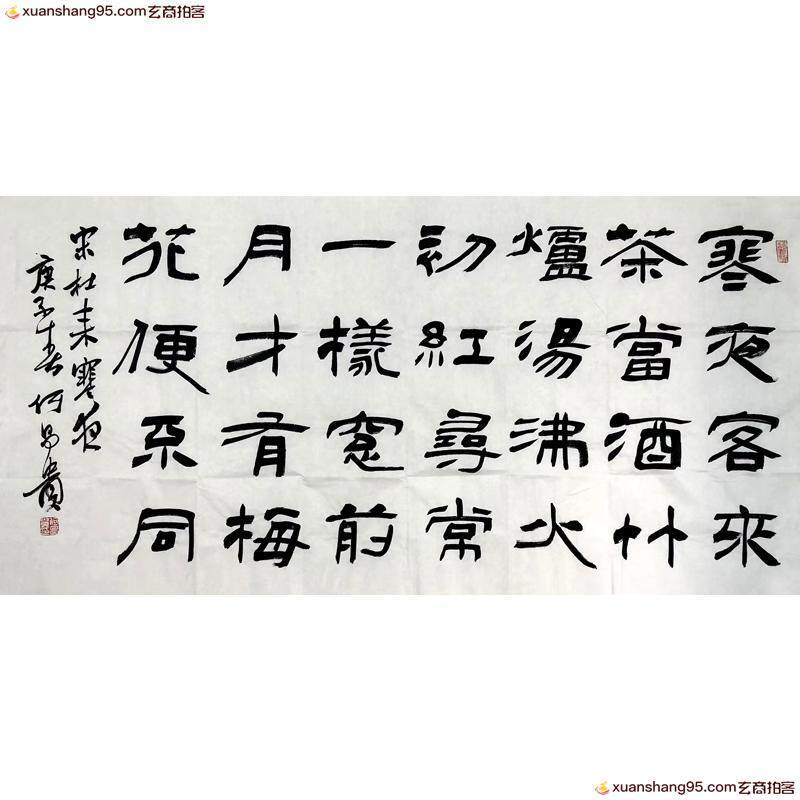 xuanshang95.com玄商拍客
寒夜客來
茶當酒竹
爐湯沸火
初紅尋常
一樣窓前
月才有梅
花便不同
宋杜耒寒夜
庚子春何昌貴
xuanshang95.com玄商拍客